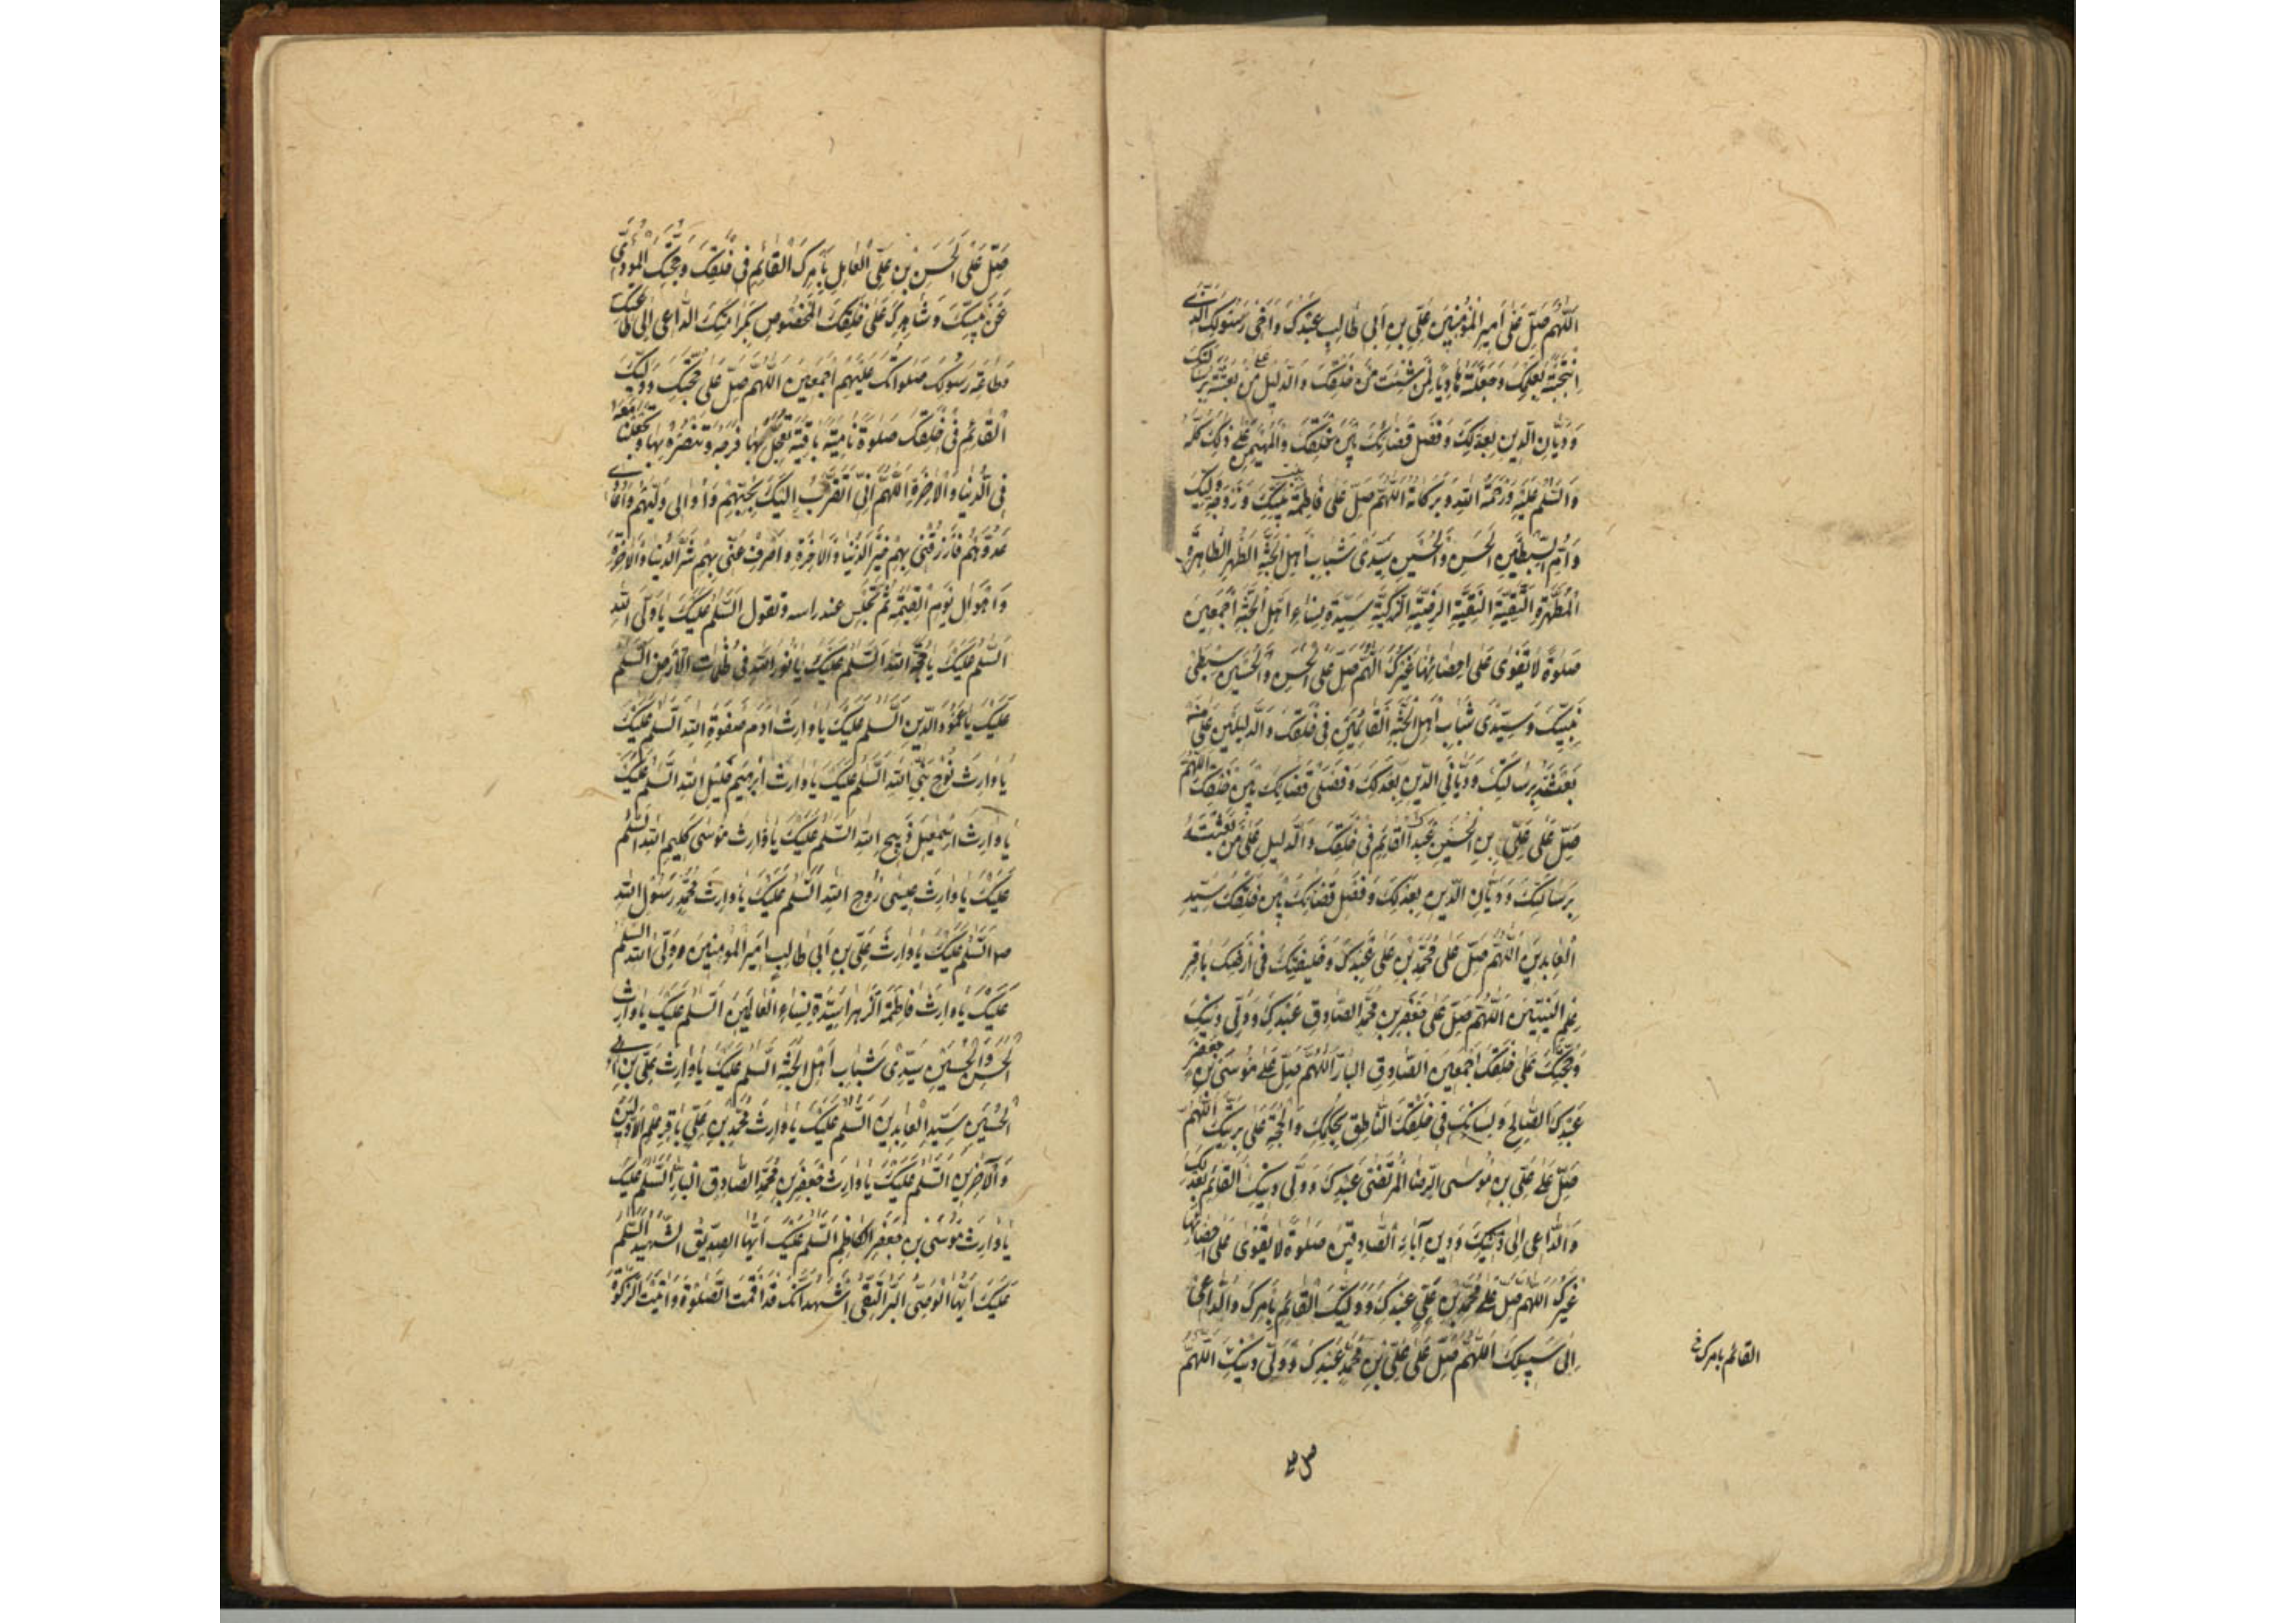 اللّهُمَّ صَلِّ عَلى اَمیرِ الْمُؤْمِنینَ عَلیِّ بنِ اَبی طالِبٍ عَبْدِکَ وَاَخی رَسُولِکَ الَّذی
انْتَجَبْتَهُ بِعِلْمِکَ وَجَعَلْتَهُ هادِیاً لِمَنْ شِئْتَ مِنْ خَلْقِکَ وَالدَّلیلَ عَلی مَنْ بَعَثْتَهُ بِرِسالاتِکَ
وَدَیّانِ الدّینِ بِعَدْلِکَ وَفَصْلِ قَضائِکَ بَیْنَ خَلْقِکَ وَالْمُهَیْمِنِ عَلی ذلِکَ کُلِّهِ
وَالسَّلمُ عَلَیْهِ وَرَحْمَةُ اللهِ وَبَرَکاتُهُ اَللّهُمَّ صَلِّ عَلی فاطِمَةَ بِنْتِ نَبِیِّکَ وَزَوْجَةِ وَلِیِّکَ
وَاُمِّ السِّبْطَیْنِ الْحَسَنِ وَالْحُسَیْنِ سَیِّدَیْ شَبابِ اَهْلِ الْجَنَّةِ الطُّهْرِ الطّاهِرَةِ
الْمُطَهَّرَةِ التَّقِیَّةِ النَّقِیَّةِ الرَّضِیَّةِ الزَّکِیَّةِ سَیِّدَةِ نِساءِ اَهْلِ الْجَنَّةِ اَجْمَعینَ
صَلوةً لا یَقْوی عَلی اِحْصائِها غَیْرُکَ اللّهُمَّ صَلِّ عَلَی الْحَسَنِ وَالْحُسَیْنِ سِبْطَیْ
نَبِیِّکَ وَسَیِّدَیْ شَبابِ اَهْلِ الْجَنَّةِ الْقائِمَیْنِ فی خَلْقِکَ وَالدَّلیلَیْنِ عَلی مَنْ
بَعَثْتَهُ بِرِسالَتِکَ وَدَیّانَیِ الدّینِ بِعَدْلِکَ وَفَصْلَیْ قَضائِکَ بَیْنَ خَلْقِکَ اللّهُمَّ
صَلِّ عَلی عَلِیِّ بْنِ الْحُسَیْنِ عَبْدِکَ الْقائِمِ فی خَلْقِکَ وَالدَّلیلِ عَلی مَنْ بَعَثْتَهُ
بِرِسالَتِکَ وَدَیّانِ الدّینِ بِعَدْلِکَ وَفَصْلِ قَضائِکَ بَیْنَ خَلْقِکَ سَیِّدِ
الْعابِدینَ اَللّهُمَّ صَلِّ عَلی مُحَمَّدِ بْنِ عَلِی عَبْدِکَ وَخَلیفَتِکَ فی اَرْضِکَ باقِرِ
عِلْمِ النَّبِیّینَ اَللّهُمَّ صَلِّ عَلی جَعْفَرِ بنِ مُحَمَّدٍ الصّادِقِ عَبْدِکَ وَوَلِیِّ دینِکَ
وَحُجَّتِکَ عَلی خَلْقِکَ اَجْمَعینَ الصّادِقِ البارِّ اللّهُمَّ صَلِّ عَلی مُوسَی بْنِ جَعْفَرٍ
عَبْدِکَ الصّالِحِ وَلِسانِکَ فی خَلْقِکَ النّاطِقِ بِحُکْمِکَ وَالْحُجَّةِ عَلی بَرِیَّتِکَ اللّهُمَّ
صَلِّ عَلی عَلِیِّ بنِ مُوسَی الرِّضا الْمُرْتَضی عَبْدِکَ وَوَلِیِّ دینِکَ الْقائِمِ بِعَدْلِکَ
وَالدّاعی اِلی دینِکَ وَدینِ آبائِهِ الصّادِقینَ صَلوةً لا یَقْوی عَلی اِحْصائِها
غَیْرُکَ اللّهُمَّ صَلِّ عَلی مُحَمَّدِ بْنِ عَلِیٍّ عَبْدِکَ وَوَلِیِّکَ الْقائِمِ بِاَمْرِکَ وَالدّاعی
اِلی سَبیلِکَ اَللّهُمَّ صَلِّ عَلی عَلِیِّ بْنِ مُحَمَّدٍ عَبْدِکَ وَوَلِیِّ دینِکَ اَللّهُمَّ
القائم بامرک فی
صل علی
صَلِّ عَلَی الْحَسَنِ بْنِ عَلِیٍّ الْعامِلِ بِاَمْرِکَ الْقائِمِ فی خَلْقِکَ وَحُجَّتِکَ الْمُؤَدّی
عَنْ نَبِیِّکَ وَشاهِدِکَ عَلی خَلْقِکَ الْمَخْصُوصِ بِکَرامَتِکَ الدّاعی اِلی طاعَتِکَ
وَطاعَةِ رَسُولِکَ صَلَواتُکَ عَلَیْهِمْ اَجْمَعینَ اللّهُمَّ صَلِّ عَلی حُجَّتِکَ وَوَلِیِّکَ
الْقائِمِ فی خَلْقِکَ صَلوةً نامِیَةً باقِیَةً تُعَجِّلُ بِها فَرَجَهُ وَتَنْصُرُهُ بِها وَتَجْعَلُنا مَعَهُ
فِی الدُّنْیا وَالْاخِرَةِ اَللّهُمَّ اِنّی اَتَقَرَّبُ اِلَیْکَ بِحُبِّهِمْ وَاُوالی وَلِیَّهُمْ وَاُعادی
عَدُوَّهُمْ فَارْزُقْنی بِهِمْ خَیْرَ الدُّنْیا وَالْاخِرَةِ وَاصْرِفْ عَنّی بِهِمْ شَرَّ الدُّنْیا وَالْاخِرَةِ
وَاَهْوالَ یَوْمِ الْقِیمَةِ ثُمَّ تَجْلِسُ عند راسه وتقول اَلسَّلمُ عَلَیْکَ یا وَلِیَّ اللهِ
السَّلمُ عَلَیْکَ یا حُجَّةَ اللهِ السَّلمُ عَلَیْکَ یا نُورَ اللهِ فی ظُلُماتِ الْاَرْضِ السَّلمُ
عَلَیْکَ یا عَمُودَ الدّینِ السَّلمُ عَلَیْکَ یا وارِثَ ادَمَ صَفْوَةِ اللهِ السَّلمُ عَلَیْکَ
یا وارِثَ نُوحٍ نَبِیِّ اللهِ السَّلمُ عَلَیْکَ یا وارِثَ اِبْرهیمَ خَلیلِ اللهِ السَّلمُ عَلَیْکَ
یا وارِثَ اِسْمعیلَ ذَبیحِ اللهِ السَّلمُ عَلَیْکَ یا وارِثَ مُوسی کَلیمِ اللهِ السَّلمُ
عَلَیْکَ یا وارِثَ عیسی رُوحِ اللهِ السَّلمُ عَلَیْکَ یا وارِثَ مُحَمَّدٍ رَسُولِ اللهِ
ص السَّلمُ عَلَیْکَ یا وارِثَ عَلِیِّ بنِ اَبی طالِبٍ اَمیرِ الْمُومِنینَ وَوَلِیِّ اللهِ السَّلمُ
عَلَیْکَ یا وارِثَ فاطِمَةَ الزَّهْراءِ سَیِّدَةِ نِساءِ الْعالَمینَ السَّلمُ عَلَیْکَ یا وارِثَ
الْحَسَنِ وَالْحُسَیْنِ سَیِّدَیْ شَبابِ اَهْلِ الْجَنَّةِ السَّلمُ عَلَیْکَ یا وارِثَ عَلِیِّ بنِ
الْحُسَیْنِ سَیِّدِ الْعابِدینَ السَّلمُ عَلَیْکَ یا وارِثَ مُحَمَّدِ بنِ عَلِیٍّ باقِرِ عِلْمِ الْاَوَّلینَ
وَالْآخِرینَ السَّلمُ عَلَیْکَ یا وارِثَ جَعْفَرِ بنِ مُحَمَّدٍ الصّادِقِ الْبارِّ السَّلمُ عَلَیْکَ
یا وارِثَ مُوسَی بنِ جَعْفَرٍ الْکاظِمِ السَّلمُ عَلَیْکَ اَیُّهَا الصِّدّیقُ الشَّهیدُ السَّلمُ
عَلَیْکَ اَیُّهَا الْوَصِیُّ الْبَرُّ التَّقِیُّ اَشْهَدُ اَنَّکَ قَدْ اَقَمْتَ الصَّلوةَ وَآتَیْتَ الزَّکوةَ